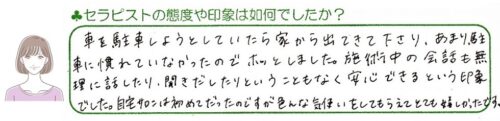 ♣セラピストの態度や印象は如何でしたか？
車を駐車しようとしていたら家から出てきて下さり、あまり駐
車に慣れていなかったのでホッとしました。施術中の会話も無
理に話したり、聞きだしたりということもなく安心できるという印象
でした。自宅サロンは初めてだったのですが色んな気使いをしてもらえてとても嬉しかったです。